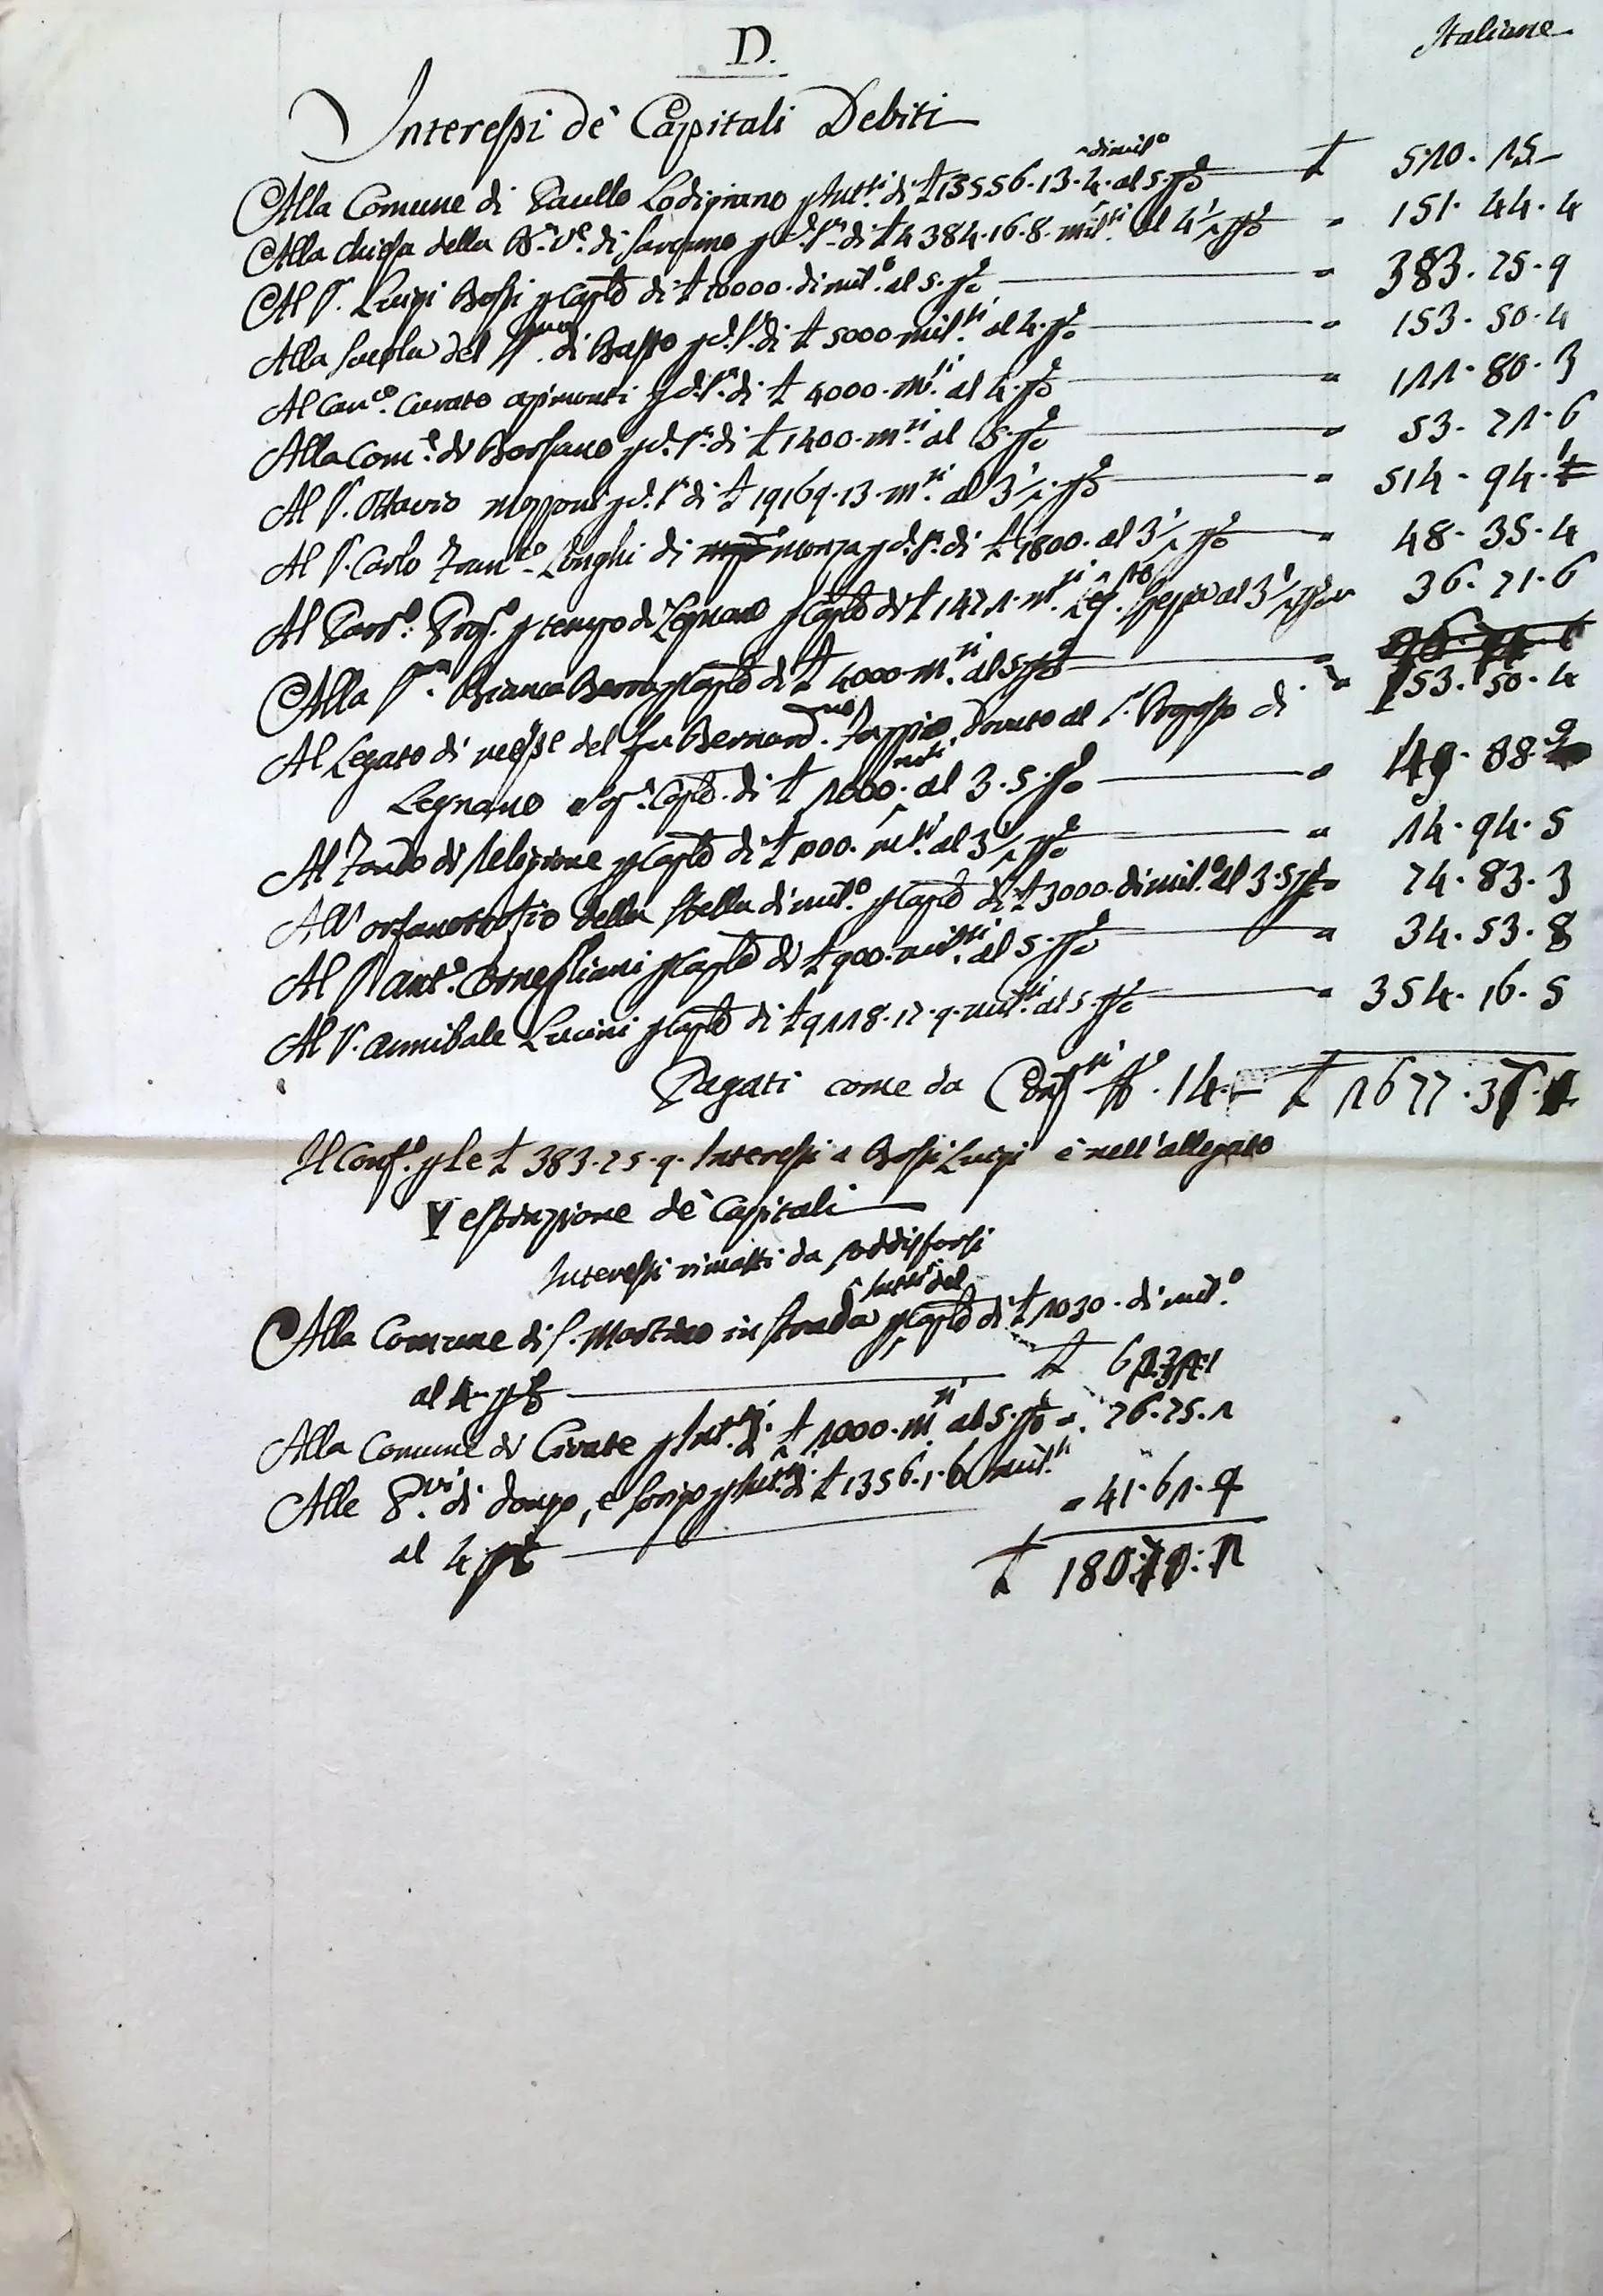 D.
Italiane
Interessi de' Capitali Debiti
di mil.o
Alla Comune di Paullo Lodigiano p Int.si di £ 13556.13.4. al 5. p% £ 510.15
Alla chiesa della B.a V.e di p d.i S.i di £ 4384.16.8. mil.si al 4 1/2 p% = 151.44.4
Al S. Luigi Bossi p Cap.le di £ 10000. di mil.o al 5. p% = 383.75.9
Alla Scuola del SS.mo di Busto p d.i S.i di £ 5000 mil.si al 4. p% = 153.50.4
Al Can.co Curato p d.i S.i di £ 4000. m.si al 4. p% = 111.80.3
Alla Com.e di Borsano p d.i S.i di £ 1400. m.si al 5. p% = 53.71.6
Al S. Ottavio Mozzoni p d.i S.i di £ 19169.13. m.si al 3 1/2 p% = 514.94.1
Al S. Carlo Fran.co Longhi di Monza p d.i S.i di £ 1800. al 3 1/2 p% = 48.35.4
Al Parr.o Prop.o p tempo di Legnano p Cap.le di £ 1471. m.si Leg.to al 3 1/2 p% = 36.71.6
Alla S.ra Bianca p Cap.le di £ 4000 m.si al 5 p% = 153.50.4
Al Legato di messe del fu Bernard.no dovuto al S. Proposto di
Legnano Cap.le di £ 1000. m.ti al 3.5. p% = 49.88.9
Al Fondo di Religione p Cap.le di £ 1000. m.si al 3 1/2 p% = 14.94.5
All'orfanotrofio della Stella di mil.o p Cap.le di £ 3000 di mil.o al 3.5 p% 74.83.3
Al S. Ant.o Cornegliani p Cap.le di £ 900. mil.si al 5. p% = 34.53.8
Al S. Annibale Lucini p Cap.le di £ 9118.17.9. mil.si al 5. p% = 354.16.5
Pagati come da Conf.si N.o 14. £ 1677.3
Il Conf.o p le £ 383.75.9. Interessi a Bossi Luigi è nell'allegato
V estinzione de' Capitali
Interessi rimasti da soddisfarsi
Int.si del
Alla Comune di S. Martino in Strada p Cap.le di £ 1030. di mil.o
al 4 p% £ 6
Alla Comune di Civate p Int.si di £ 1000. m.si al 5. p% = 76.75.1
Alle di Dongo, e p Int.si di £ 1356.1.6 mil.si
al 4 p% = 41.61.9
£ 180